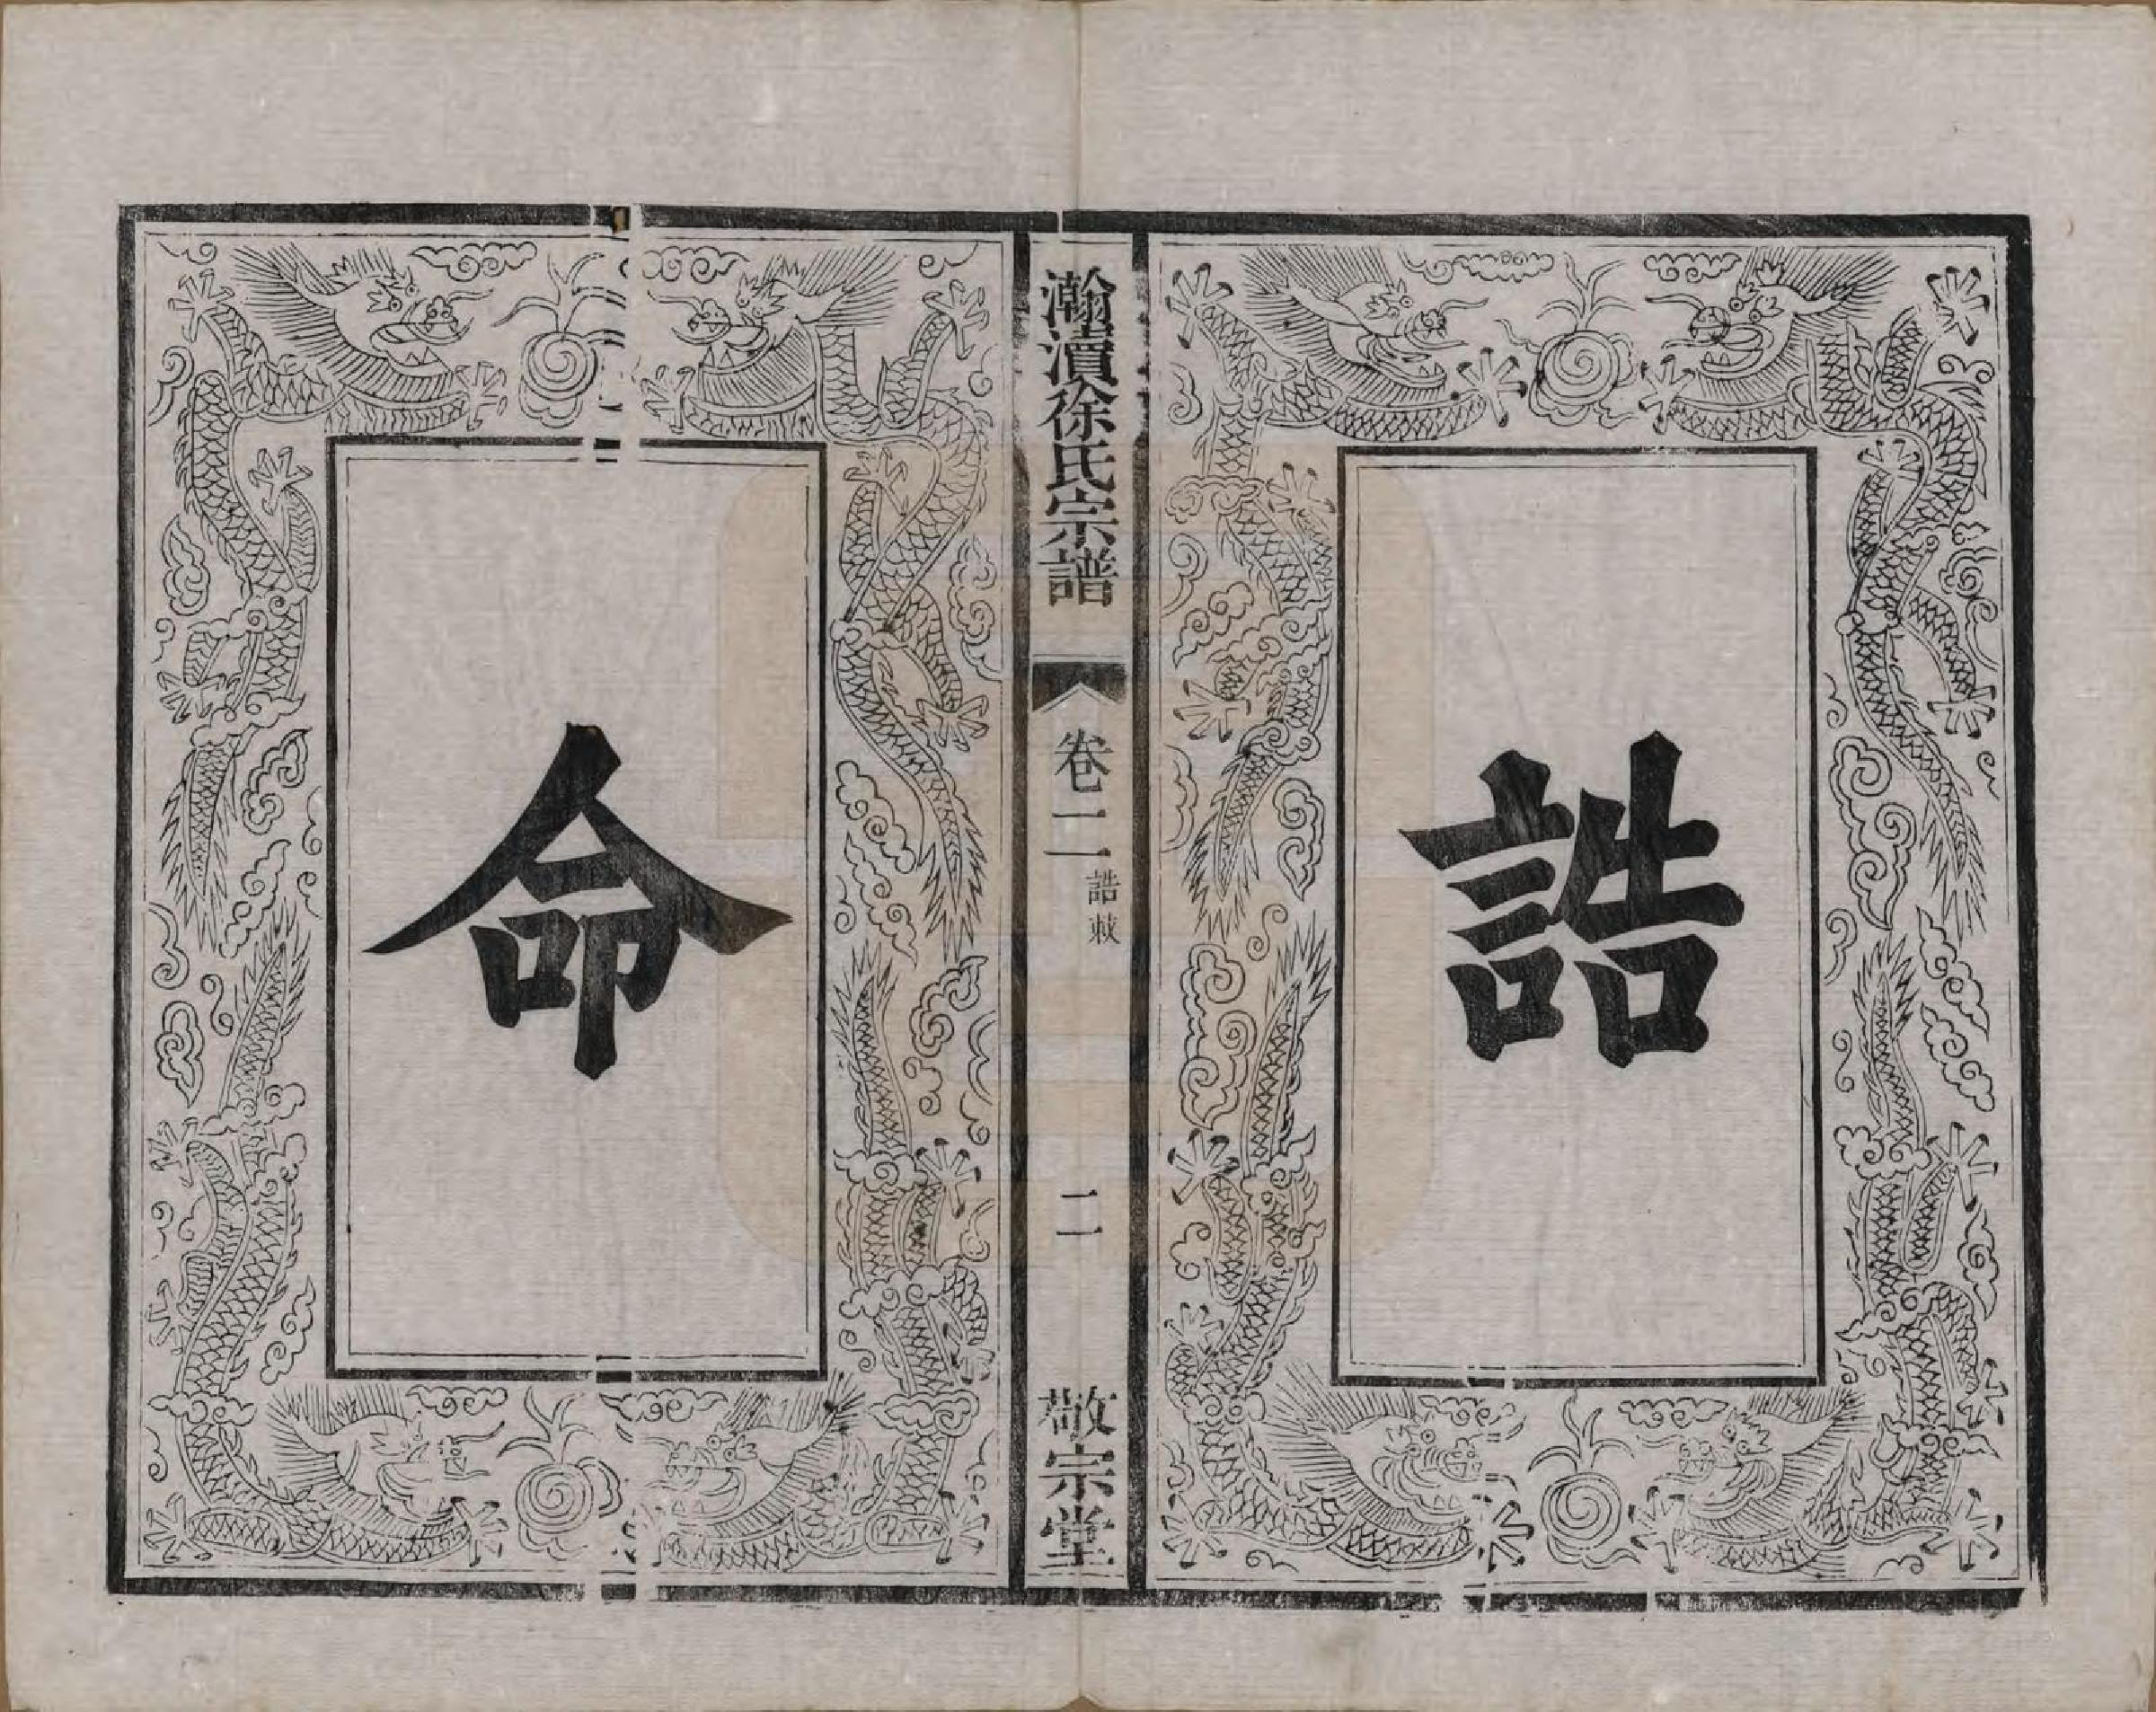 誥
瀚瀆徐氏宗譜
卷二
誥敕
二
敬宗堂
命